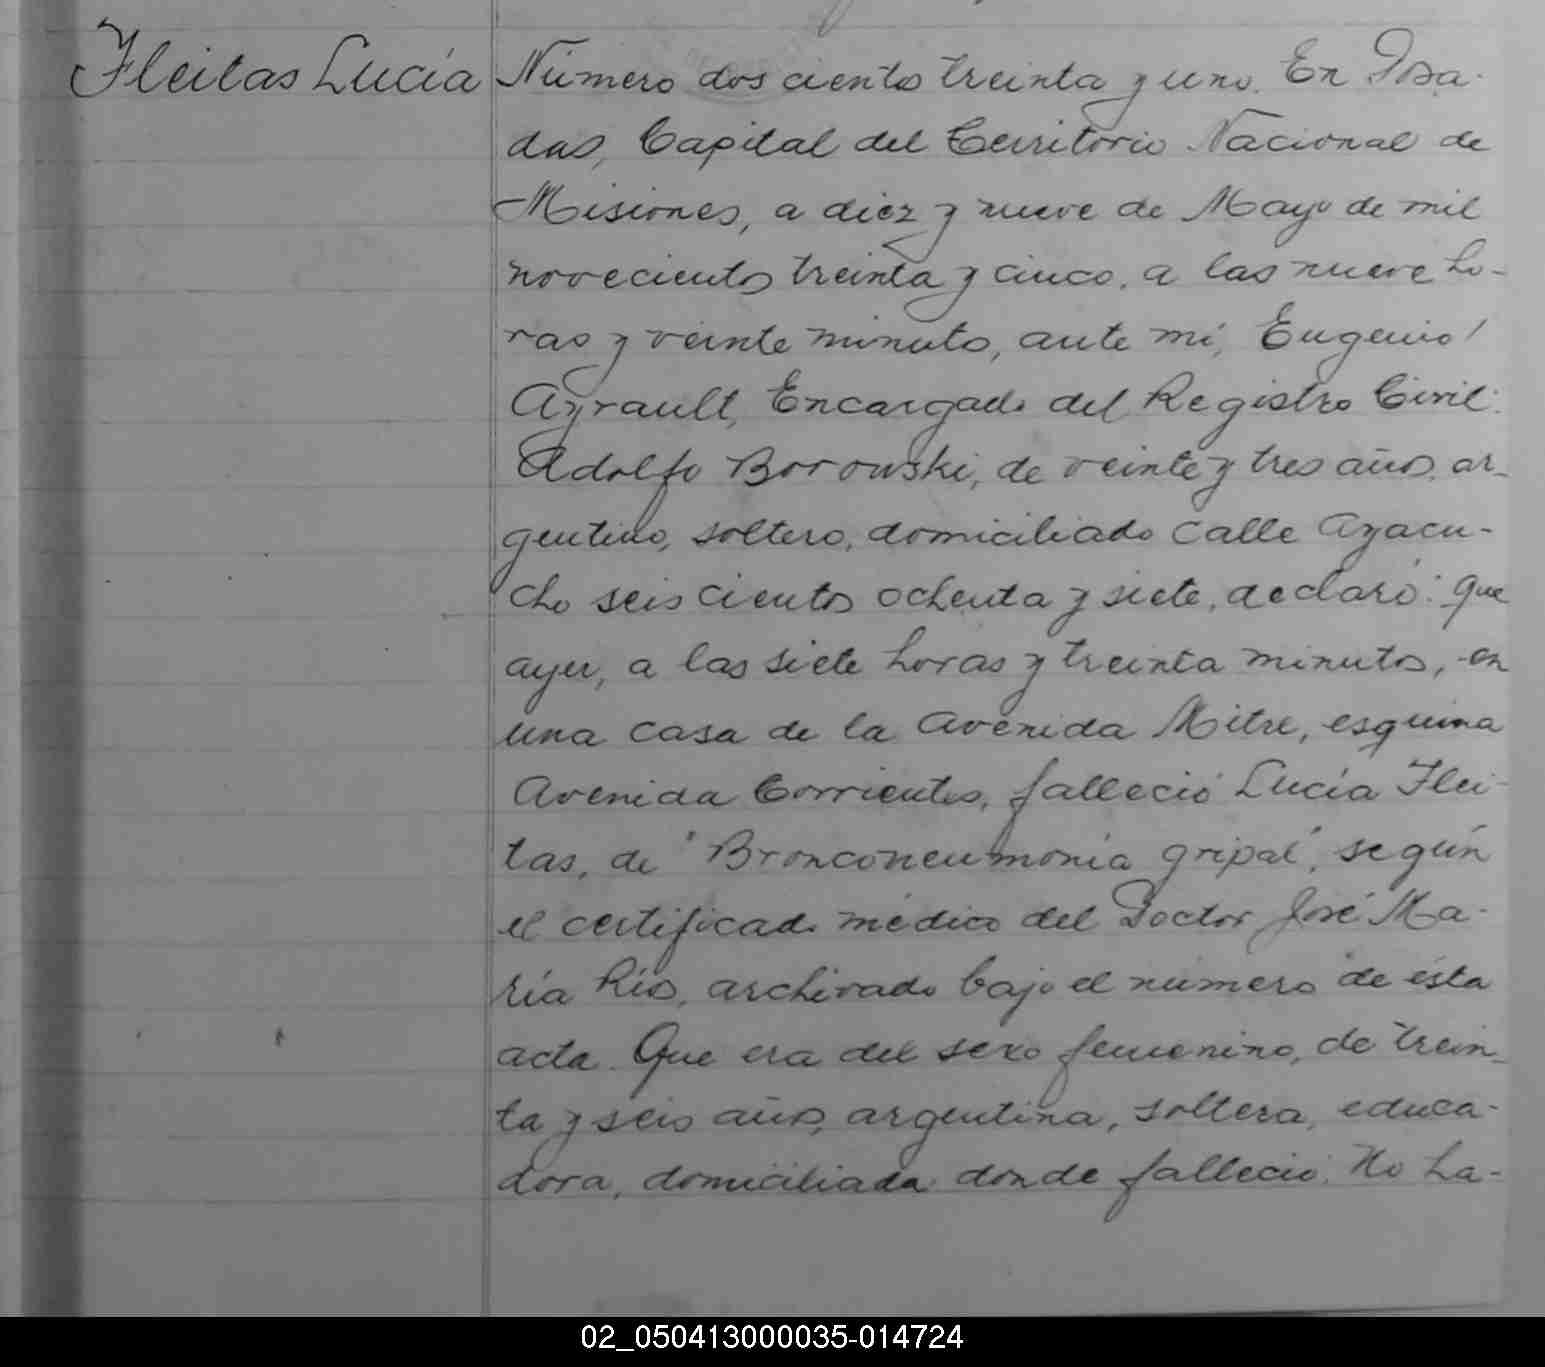 Fleitas Lucía
Número doscientos treinta y uno. En Posa-
das, Capital del Territorio Nacional de
Misiones, a diez y nueve de Mayo de mil
novecientos treinta y cinco, a las nueve ho-
ras y veinte minutos, ante mí, Eugenio
Ayrault, Encargado del Registro Civil:
Adolfo Borowski, de veinte y tres años, ar-
gentino, soltero, domiciliado calle Ayacu-
cho seiscientos ochenta y siete, declaró: Que
ayer, a las siete horas y treinta minutos, en
una casa de la Avenida Mitre, esquina
Avenida Corrientes, falleció Lucía Flei-
tas, de "Bronconeumonía gripal", según
el certificado médico del Doctor José Ma-
ría Ríos, archivado bajo el número de ésta
acta. Que era del sexo femenino, de trein-
ta y seis años, argentina, soltera, educa-
dora, domiciliada donde falleció. No ha-
02_050413000035-014724